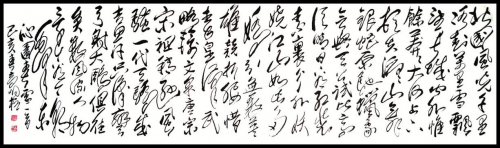 北国风光千里
冰封万里雪飘
望长城内外惟
余莽莽大河上下
顿失滔滔山舞
银蛇原驰蜡象
欲与天公试比高
须晴日看红装
素裹分外妖
娆江山如此多
娇引无数英
雄竞折腰惜
秦皇汉武
略输文采唐宗
宋祖稍逊风
骚一代天骄成
吉思汗只识弯
弓射大雕俱往
矣数风流人物
还看今朝
沁园春雪
己亥年